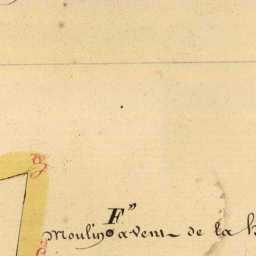 F"
Moulin a vent de la